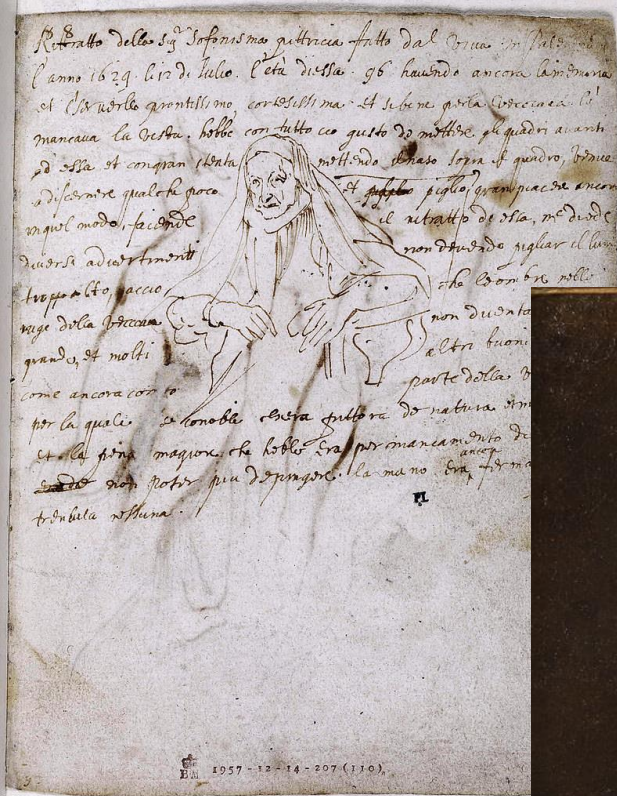 Rittratto della Sigra Sofonisma pittricia fatto dal vivo in Palermo
l'anno 1624. li 12 di Julio. l'età di essa. 96 havendo ancora la memoria
et il serverllo prontissimo, cortesissima. Et sebene per la vecciaia li
mancava la vista. hebbe con tutto cio gusto de mettere gli quadri avanti
ad essa et con gran stenta mettendo il naso sopra il quadro, venne
a discernere qualche poco et piglio gran piacere ancora
in quel modo, facendo il ritratto di essa, me diede
diversi advertimenti non devendo pigliar il lume
troppo alto, accio che le ombre nelle
ruge della vecciaia non duenta
grande, et molti altri buoni
come ancora conto parte della
per la quali se conobbe che era pittora de natura et
et la pena magiore che hebbe era per mancamento di
non poter piu depingere. la mano era ancora ferma
trembula nessuna.
PL
BM
1957-12-14-207(110)